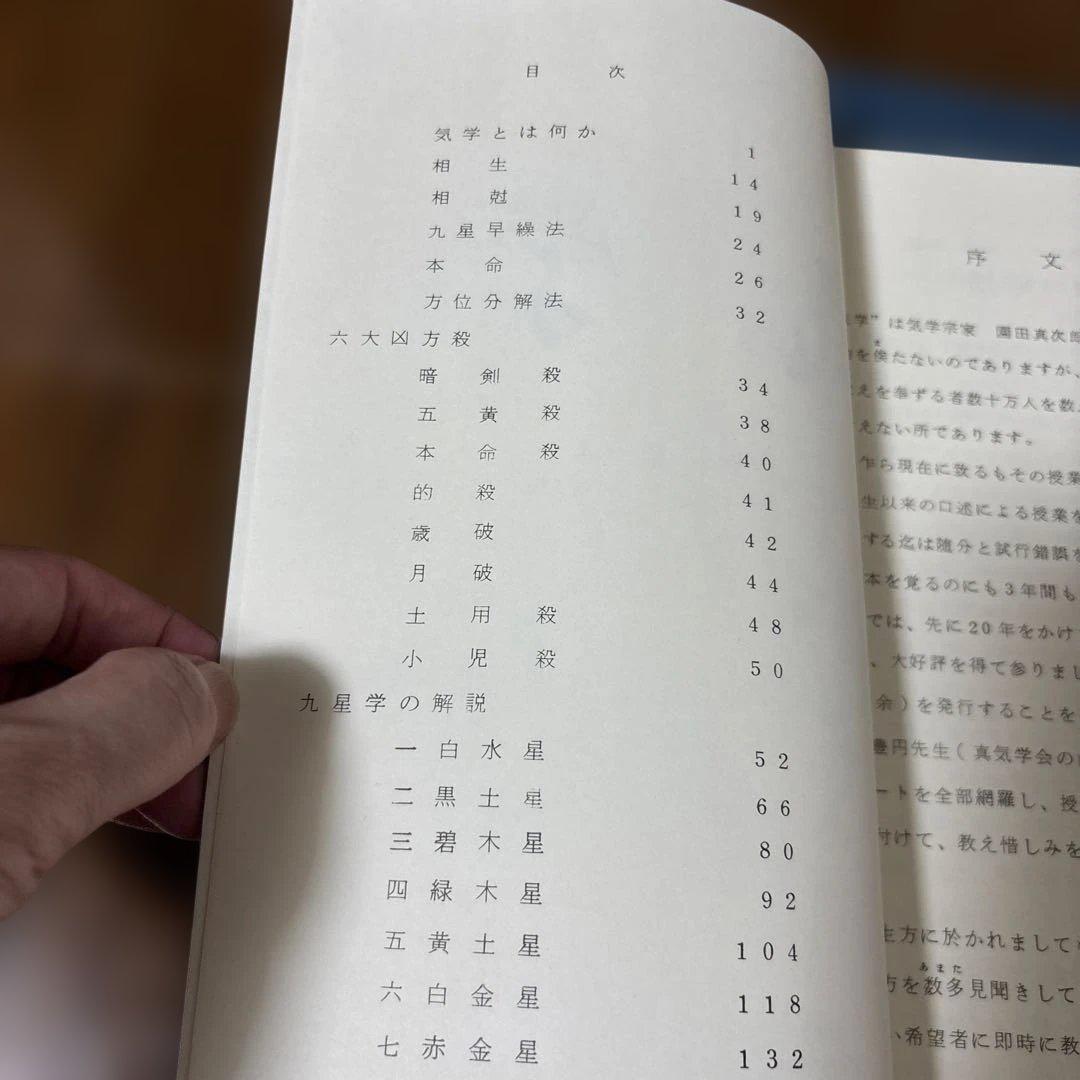 目 次
気学とは何か 1
相生 14
相尅 19
九星早繰法 24
本命 26
方位分解法 32
六大凶方殺
暗剣殺 34
五黄殺 38
本命殺 40
的殺 41
歳破 42
月破 44
土用殺 48
小児殺 50
九星学の解説
一白水星 52
二黒土星 66
三碧木星 80
四緑木星 92
五黄土星 104
六白金星 118
七赤金星 132
序 文
学”は気学宗家 園田真次郎
を俟たないのでありますが、
えを奉ずる者数十万人を数
えない所であります。
乍ら現在に致るもその授業
生以来の口述による授業を
する迄は随分と試行錯誤を
本を覚るのにも3年間も
では、先に20年をかけ
、大好評を得て参りまし
余)を発行することを
豊円先生(真気学会の
ートを全部網羅し、授
付けて、教え惜しみを
生方に於かれまして
方を数多見聞きして
い希望者に即時に教